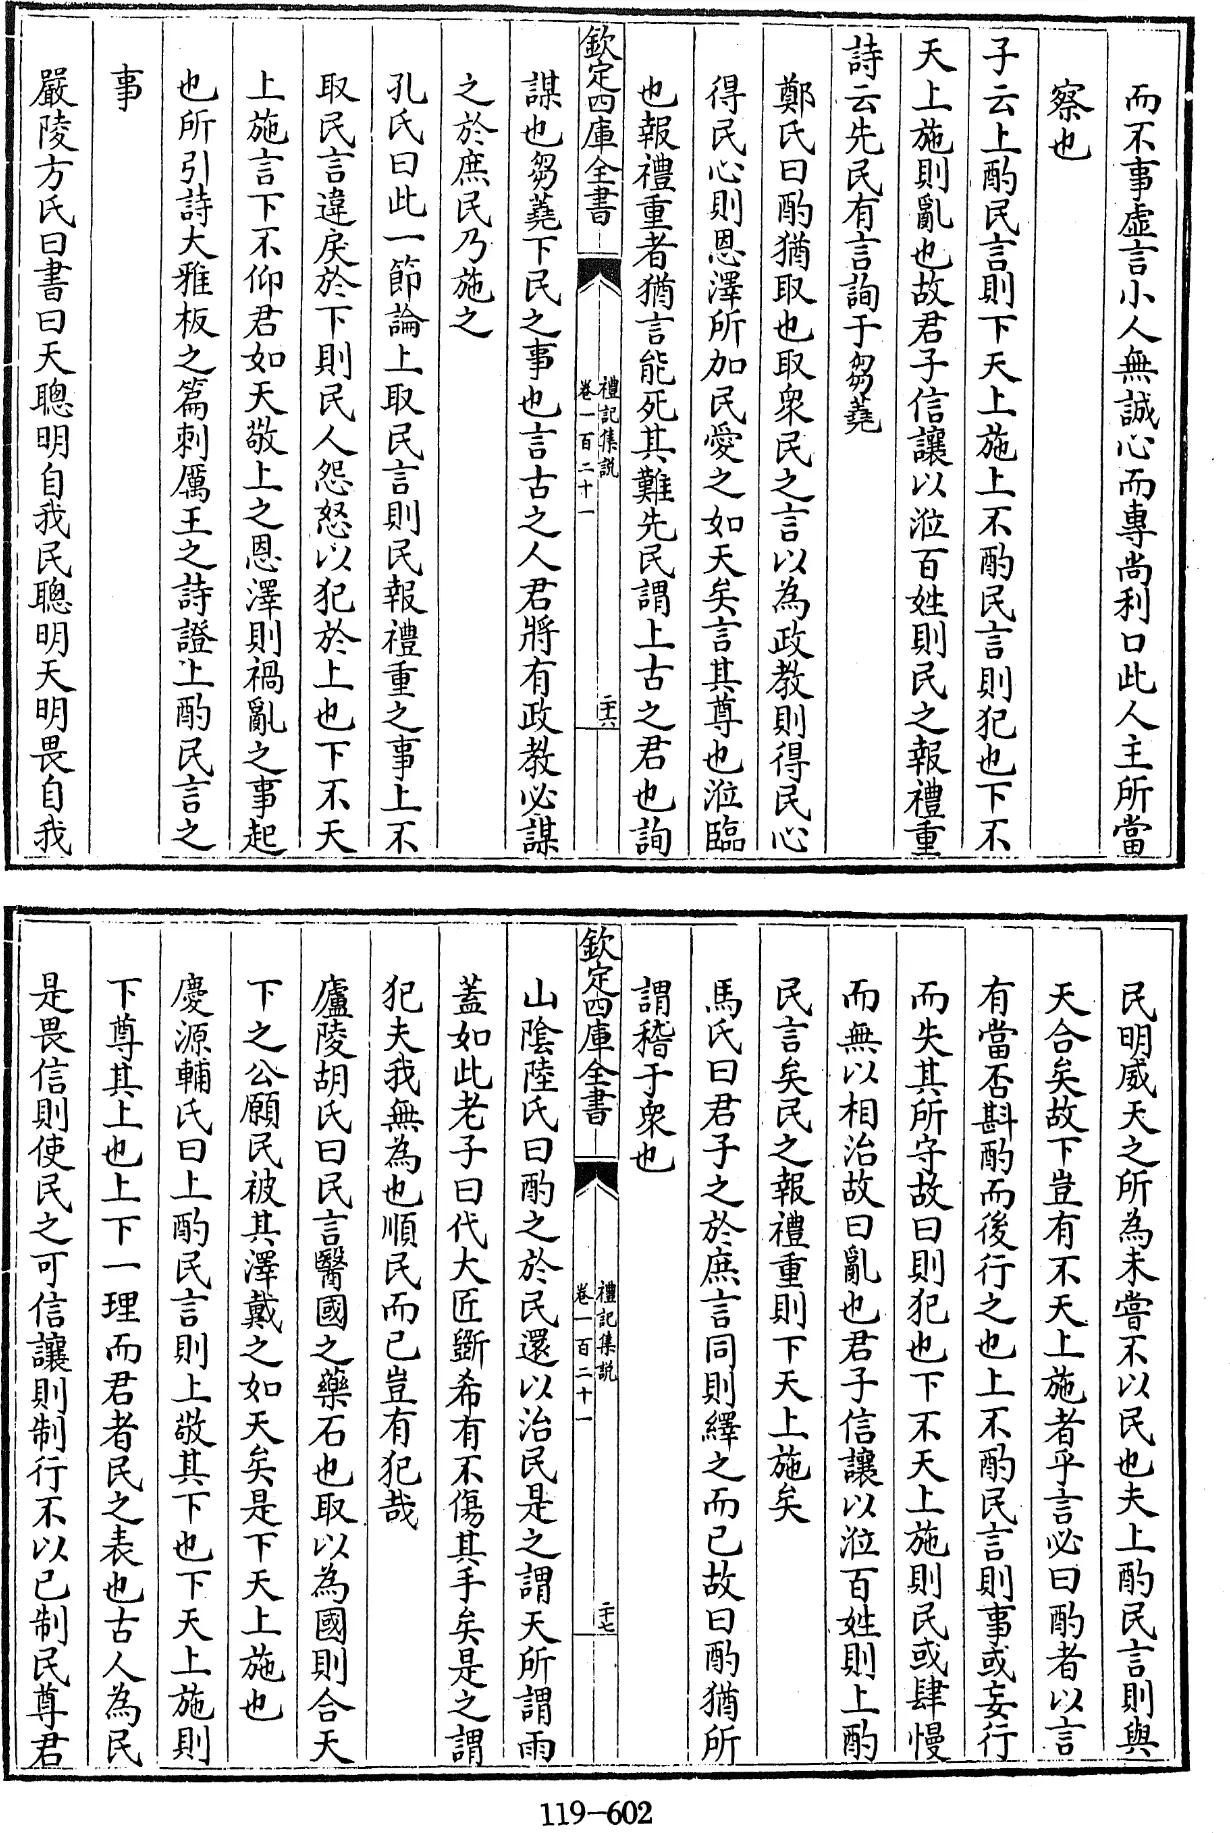 而不事虛言小人無誠心而專尚利口此人主所當
察也
子云上酌民言則下天上施上不酌民言則犯也下不
天上施則亂也故君子信讓以涖百姓則民之報禮重
詩云先民有言詢于芻蕘
鄭氏曰酌猶取也取衆民之言以為政教則得民心
得民心則恩澤所加民愛之如天矣言其尊也涖臨
也報禮重者猶言能死其難先民謂上古之君也詢
欽定四庫全書
禮記集說
卷一百二十一
二十六
謀也芻蕘下民之事也言古之人君將有政教必謀
之於庶民乃施之
孔氏曰此一節論上取民言則民報禮重之事上不
取民言違戾於下則民人怨怒以犯於上也下不天
上施言下不仰君如天敬上之恩澤則禍亂之事起
也所引詩大雅板之篇刺厲王之詩證上酌民言之
事
嚴陵方氏曰書曰天聰明自我民聰明天明畏自我
民明威天之所為未嘗不以民也夫上酌民言則與
天合矣故下豈有不天上施者乎言必曰酌者以言
有當否斟酌而後行之也上不酌民言則事或妄行
而失其所守故曰則犯也下不天上施則民或肆慢
而無以相治故曰亂也君子信讓以涖百姓則上酌
民言矣民之報禮重則下天上施矣
馬氏曰君子之於庶言同則繹之而已故曰酌猶所
謂稽于衆也
欽定四庫全書
禮記集說
卷一百二十一
二十七
山陰陸氏曰酌之於民還以治民是之謂天所謂雨
蓋如此老子曰代大匠斲希有不傷其手矣是之謂
犯夫我無為也順民而已豈有犯哉
廬陵胡氏曰民言醫國之藥石也取以為國則合天
下之公願民被其澤戴之如天矣是下天上施也
慶源輔氏曰上酌民言則上敬其下也下天上施則
下尊其上也上下一理而君者民之表也古人為民
是畏信則使民之可信讓則制行不以已制民尊君
119-602